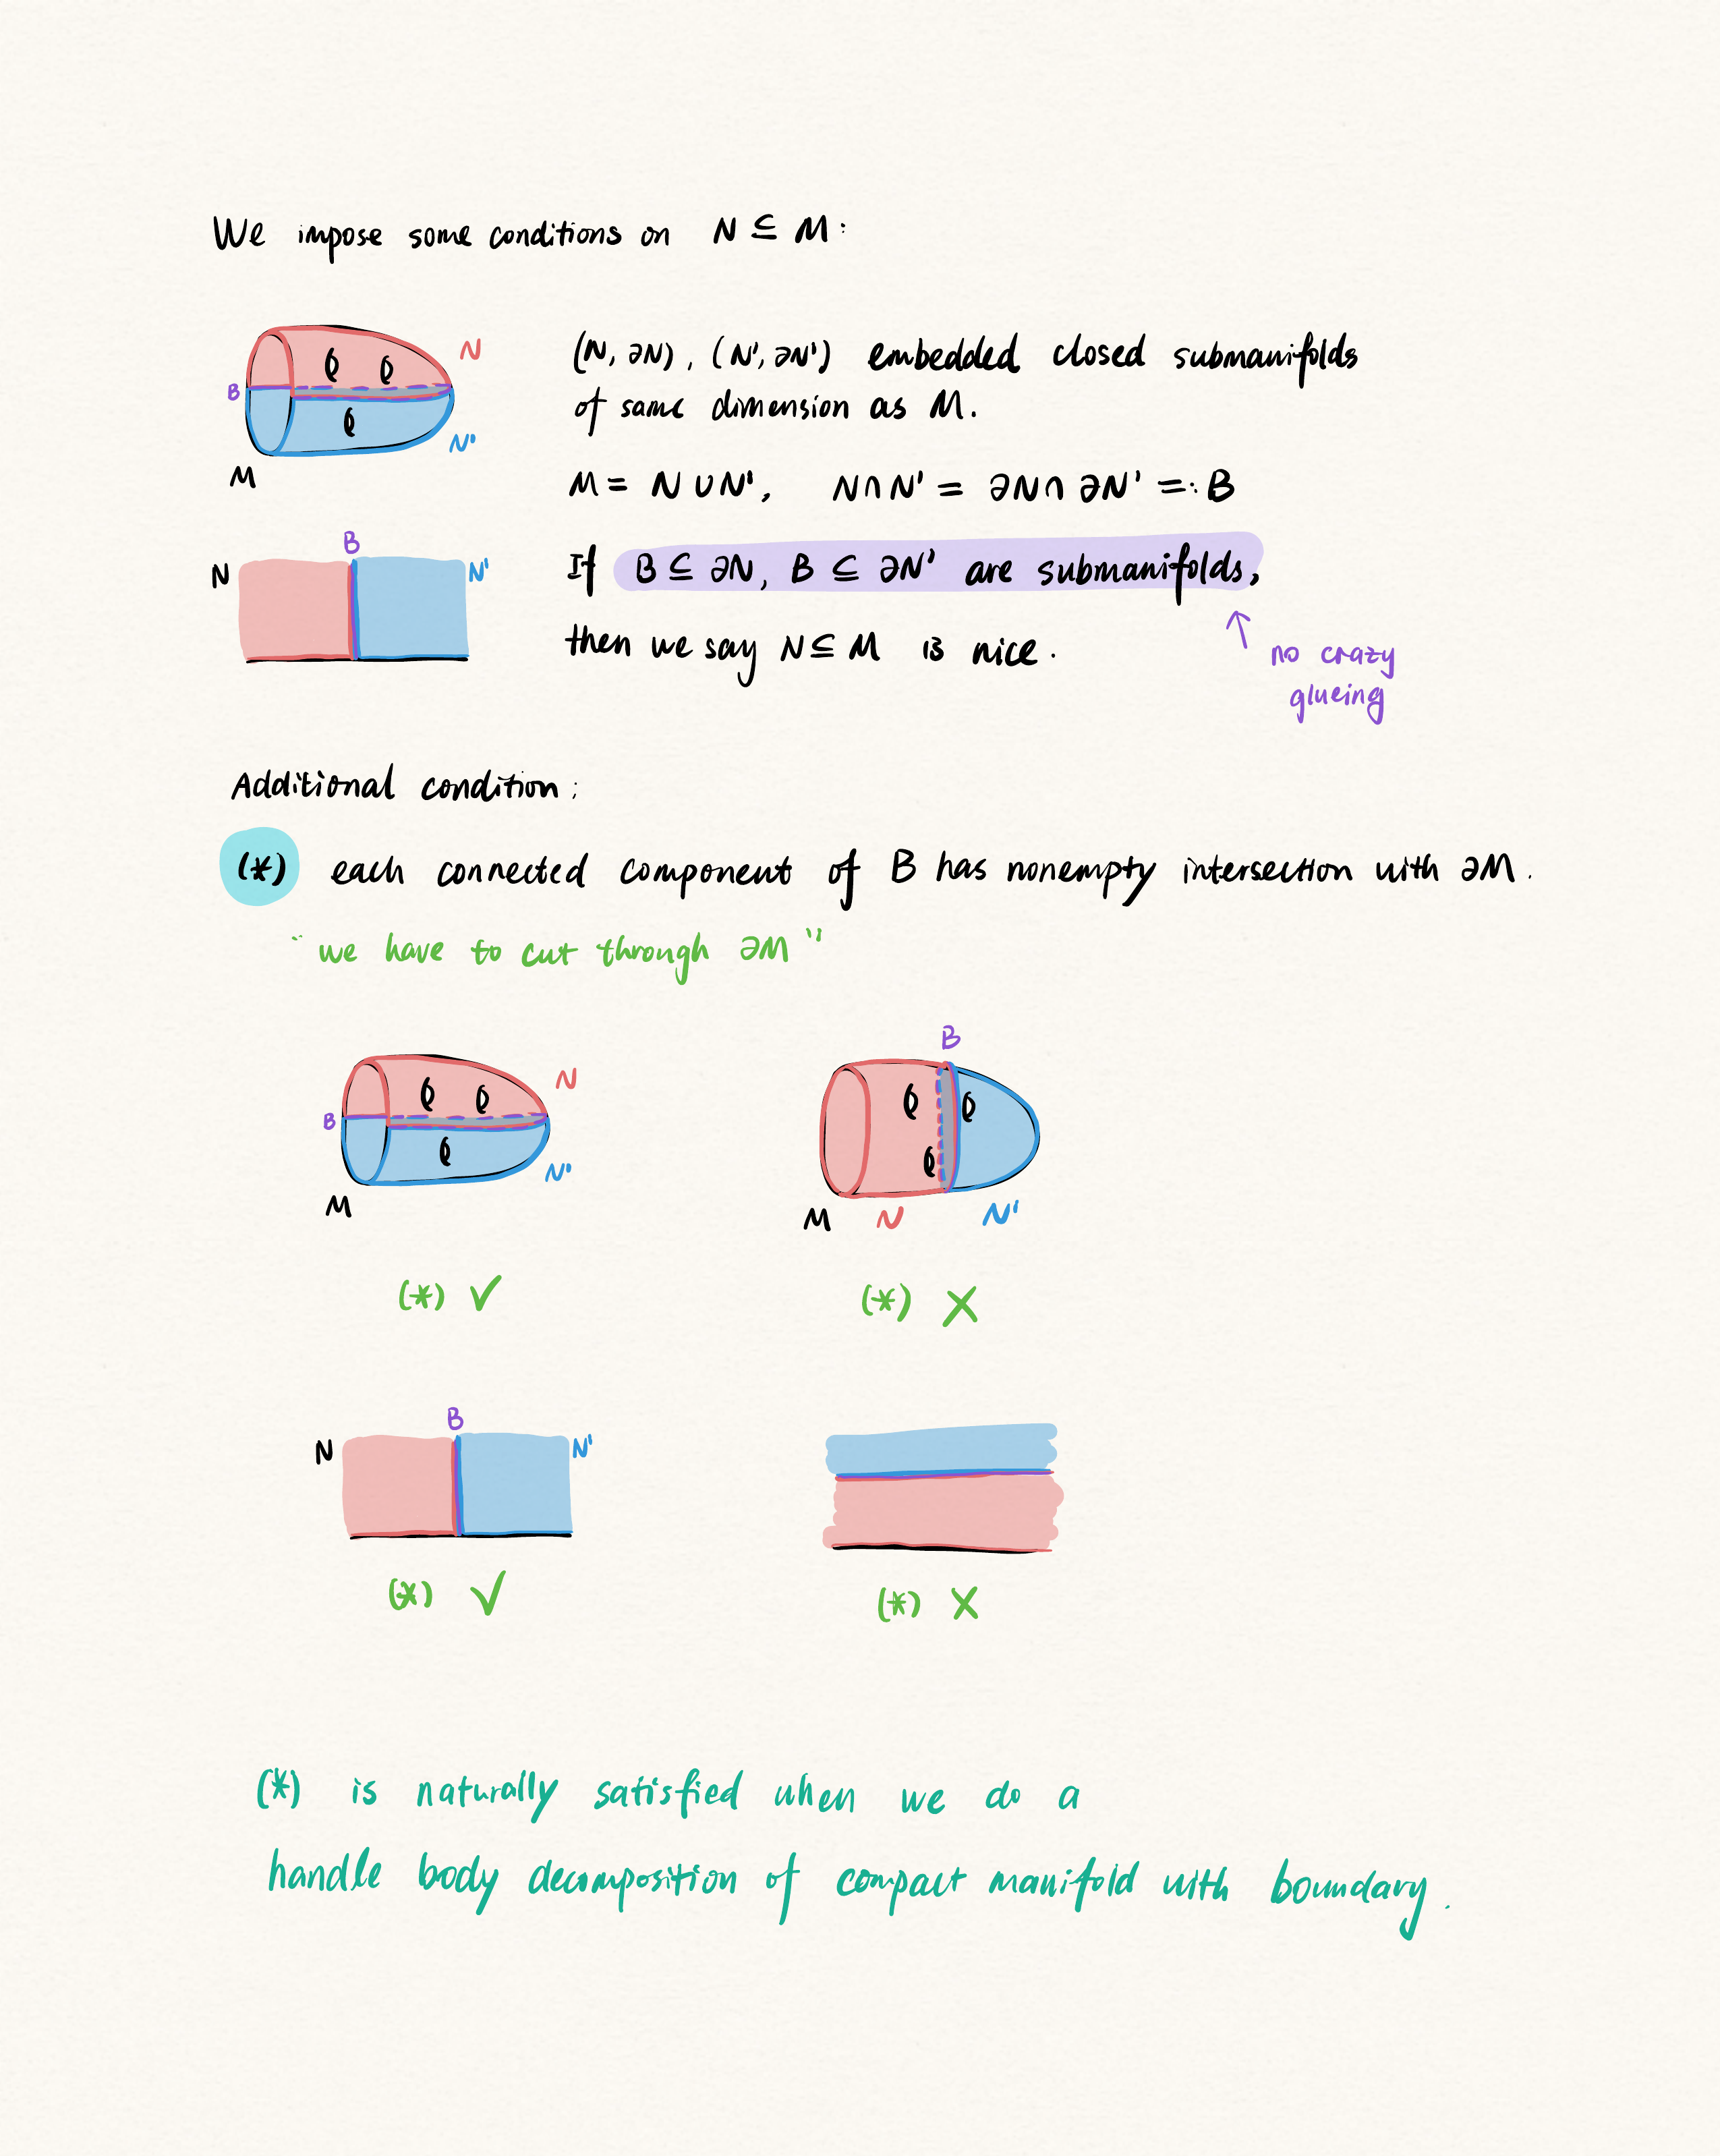 We impose some conditions on N ⊆ M:
N
B
N'
M
(N, ∂N), (N', ∂N') embedded closed submanifolds
of same dimension as M.
M = N ∪ N', N ∩ N' = ∂N ∩ ∂N' =: B
B
N
N'
If B ⊆ ∂N, B ⊆ ∂N' are submanifolds,
then we say N ⊆ M is nice.
↑ no crazy
glueing
Additional condition:
(*) each connected component of B has nonempty intersection with ∂M.
"we have to cut through ∂M"
N
B
N'
M
B
M N N'
(*) ✓
(*) X
B
N
N'
(*) ✓
(*) X
(*) is naturally satisfied when we do a
handle body decomposition of compact manifold with boundary.